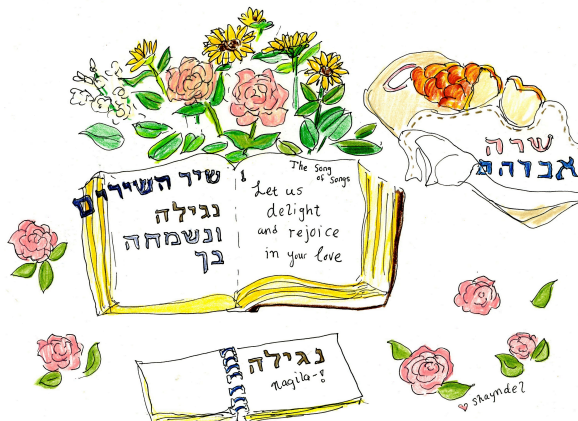 שיר השירים
נגילה
ונשמחה
בך
The Song
of Songs
Let us
delight
and rejoice
in your love
שרה
אברהם
נגילה
Nagila-!
shayndel